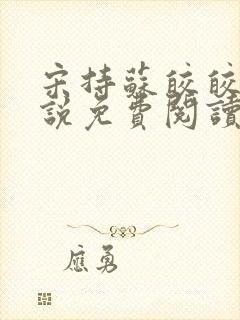 宋持蘇皎皎
說免費閱讀
應勇